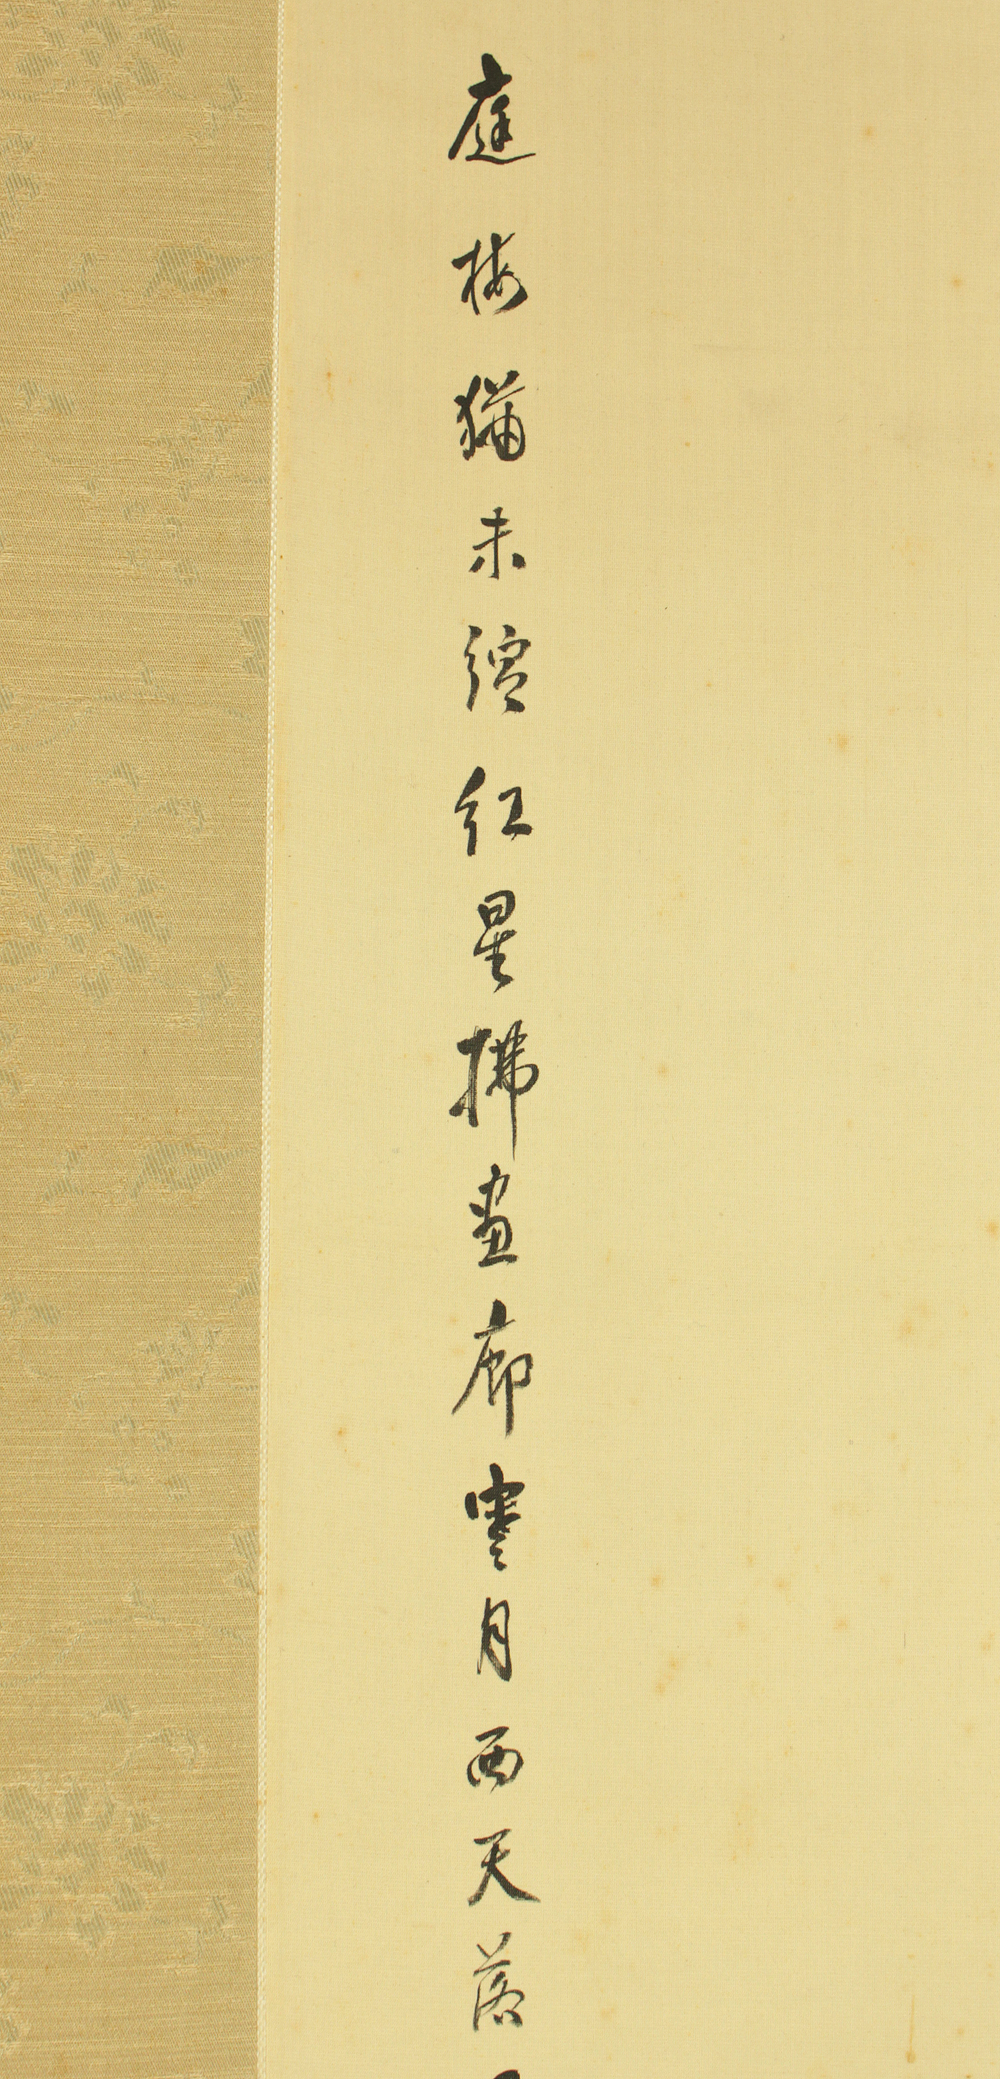 庭梅猶未綻紅星拂畫廊寒月西天落